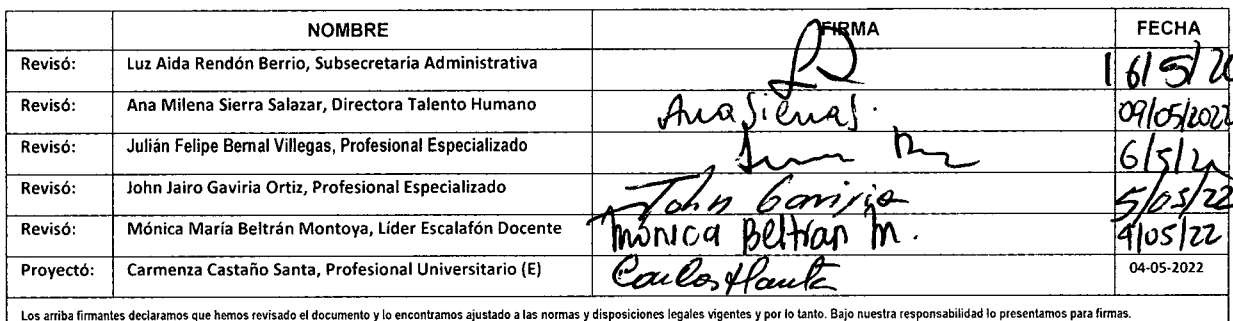 NOMBRE FIRMA FECHA
Revisó: Luz Aida Rendón Berrio, Subsecretaria Administrativa 16/5/20
Revisó: Ana Milena Sierra Salazar, Directora Talento Humano Ana Sierra S. 09/05/2022
Revisó: Julián Felipe Bernal Villegas, Profesional Especializado 6/5/22
Revisó: John Jairo Gaviria Ortiz, Profesional Especializado John Gaviria 5/05/22
Revisó: Mónica María Beltrán Montoya, Líder Escalafón Docente Mónica Beltran M. 4/05/22
Proyectó: Carmenza Castaño Santa, Profesional Universitario (E) 04-05-2022
Los arriba firmantes declaramos que hemos revisado el documento y lo encontramos ajustado a las normas y disposiciones legales vigentes y por lo tanto. Bajo nuestra responsabilidad lo presentamos para firmas.